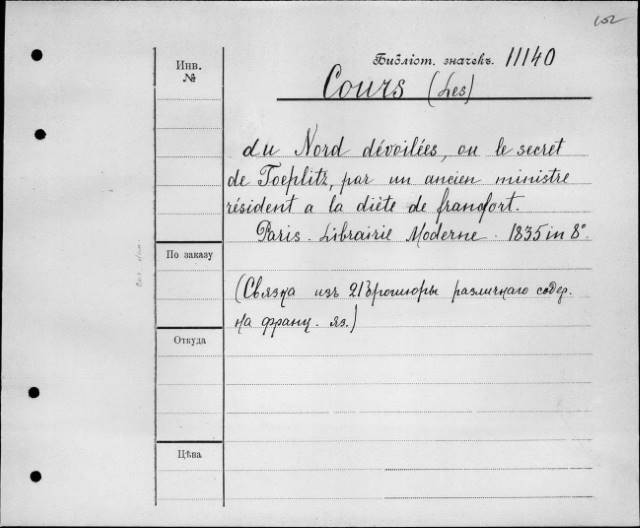 102
Библіот. значекъ. 11140
Инв.
№
Cours (Les)
du Nord dévoilées, ou le secret
de Toeplitz, par un ancien ministre
résident a la diète de francfort.
Paris. Librairie Moderne. 1835 in 8º.
По заказу
(Связка изъ 21 брошюры различнаго содер.
на франц. яз.)
Откуда
Цѣва